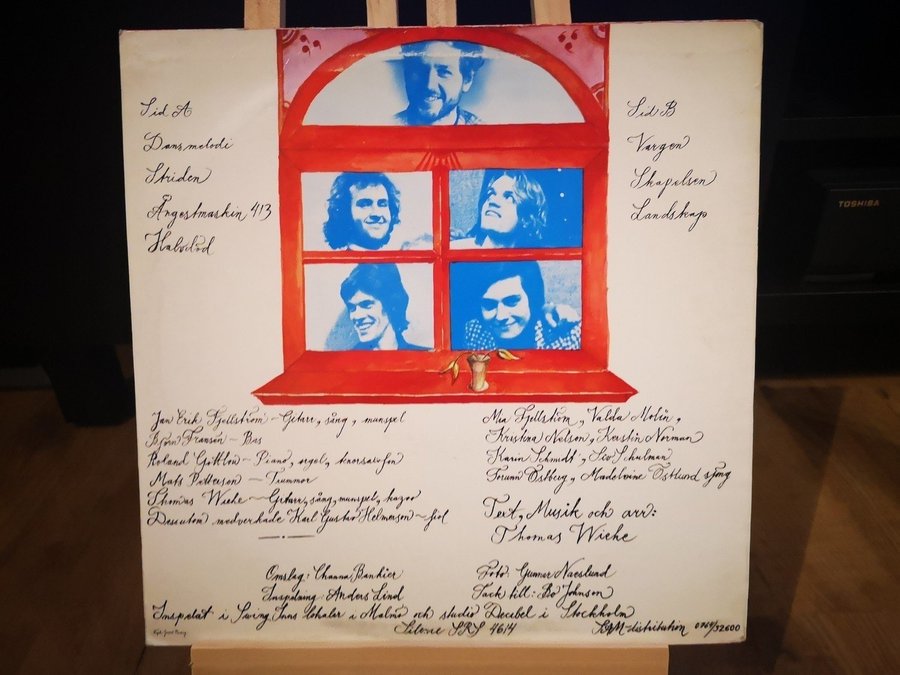 Sid A
Dansmelodi
Striden
Ångestmaskin 413
Halvblod
Sid B
Vargen
Skapelsen
Landskap
TOSHIBA
Jan Erik Fjellström – Gitarr, sång, munspel
Björn Fransén – Bas
Roland Gottlow – Piano, orgel, tenorsaxofon
Mats Pettersson – Trummor
Thomas Wiehe – Gitarr, sång, munspel, kazoo
Dessutom medverkade Karl Gustav Helmerson – fiol
Mia Fjellström, Valda Molin,
Kristina Nilson, Kerstin Norman
Karin Schmidt, Siv Schulman
Östberg, Madeleine Östlund sjöng
Text, Musik och arr:
Thomas Wiehe
Omslag: Channa Bankier
Inspelning: Anders Lind
Foto: Gunnar Naeslund
Tack till: Bo Johnson
Inspelat i Swing Inns lokaler i Malmö och studio Decibel i Stockholm
Silence SRS 4614
SAM-distribution 0764/32600